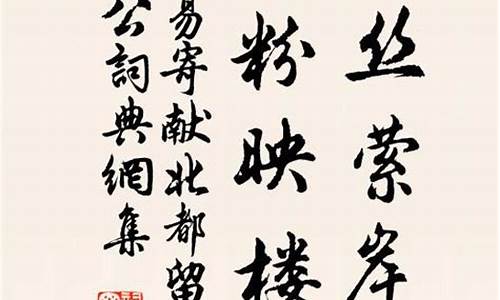 丝萦岸
粉映楼
易寄献北都留
公词典網集